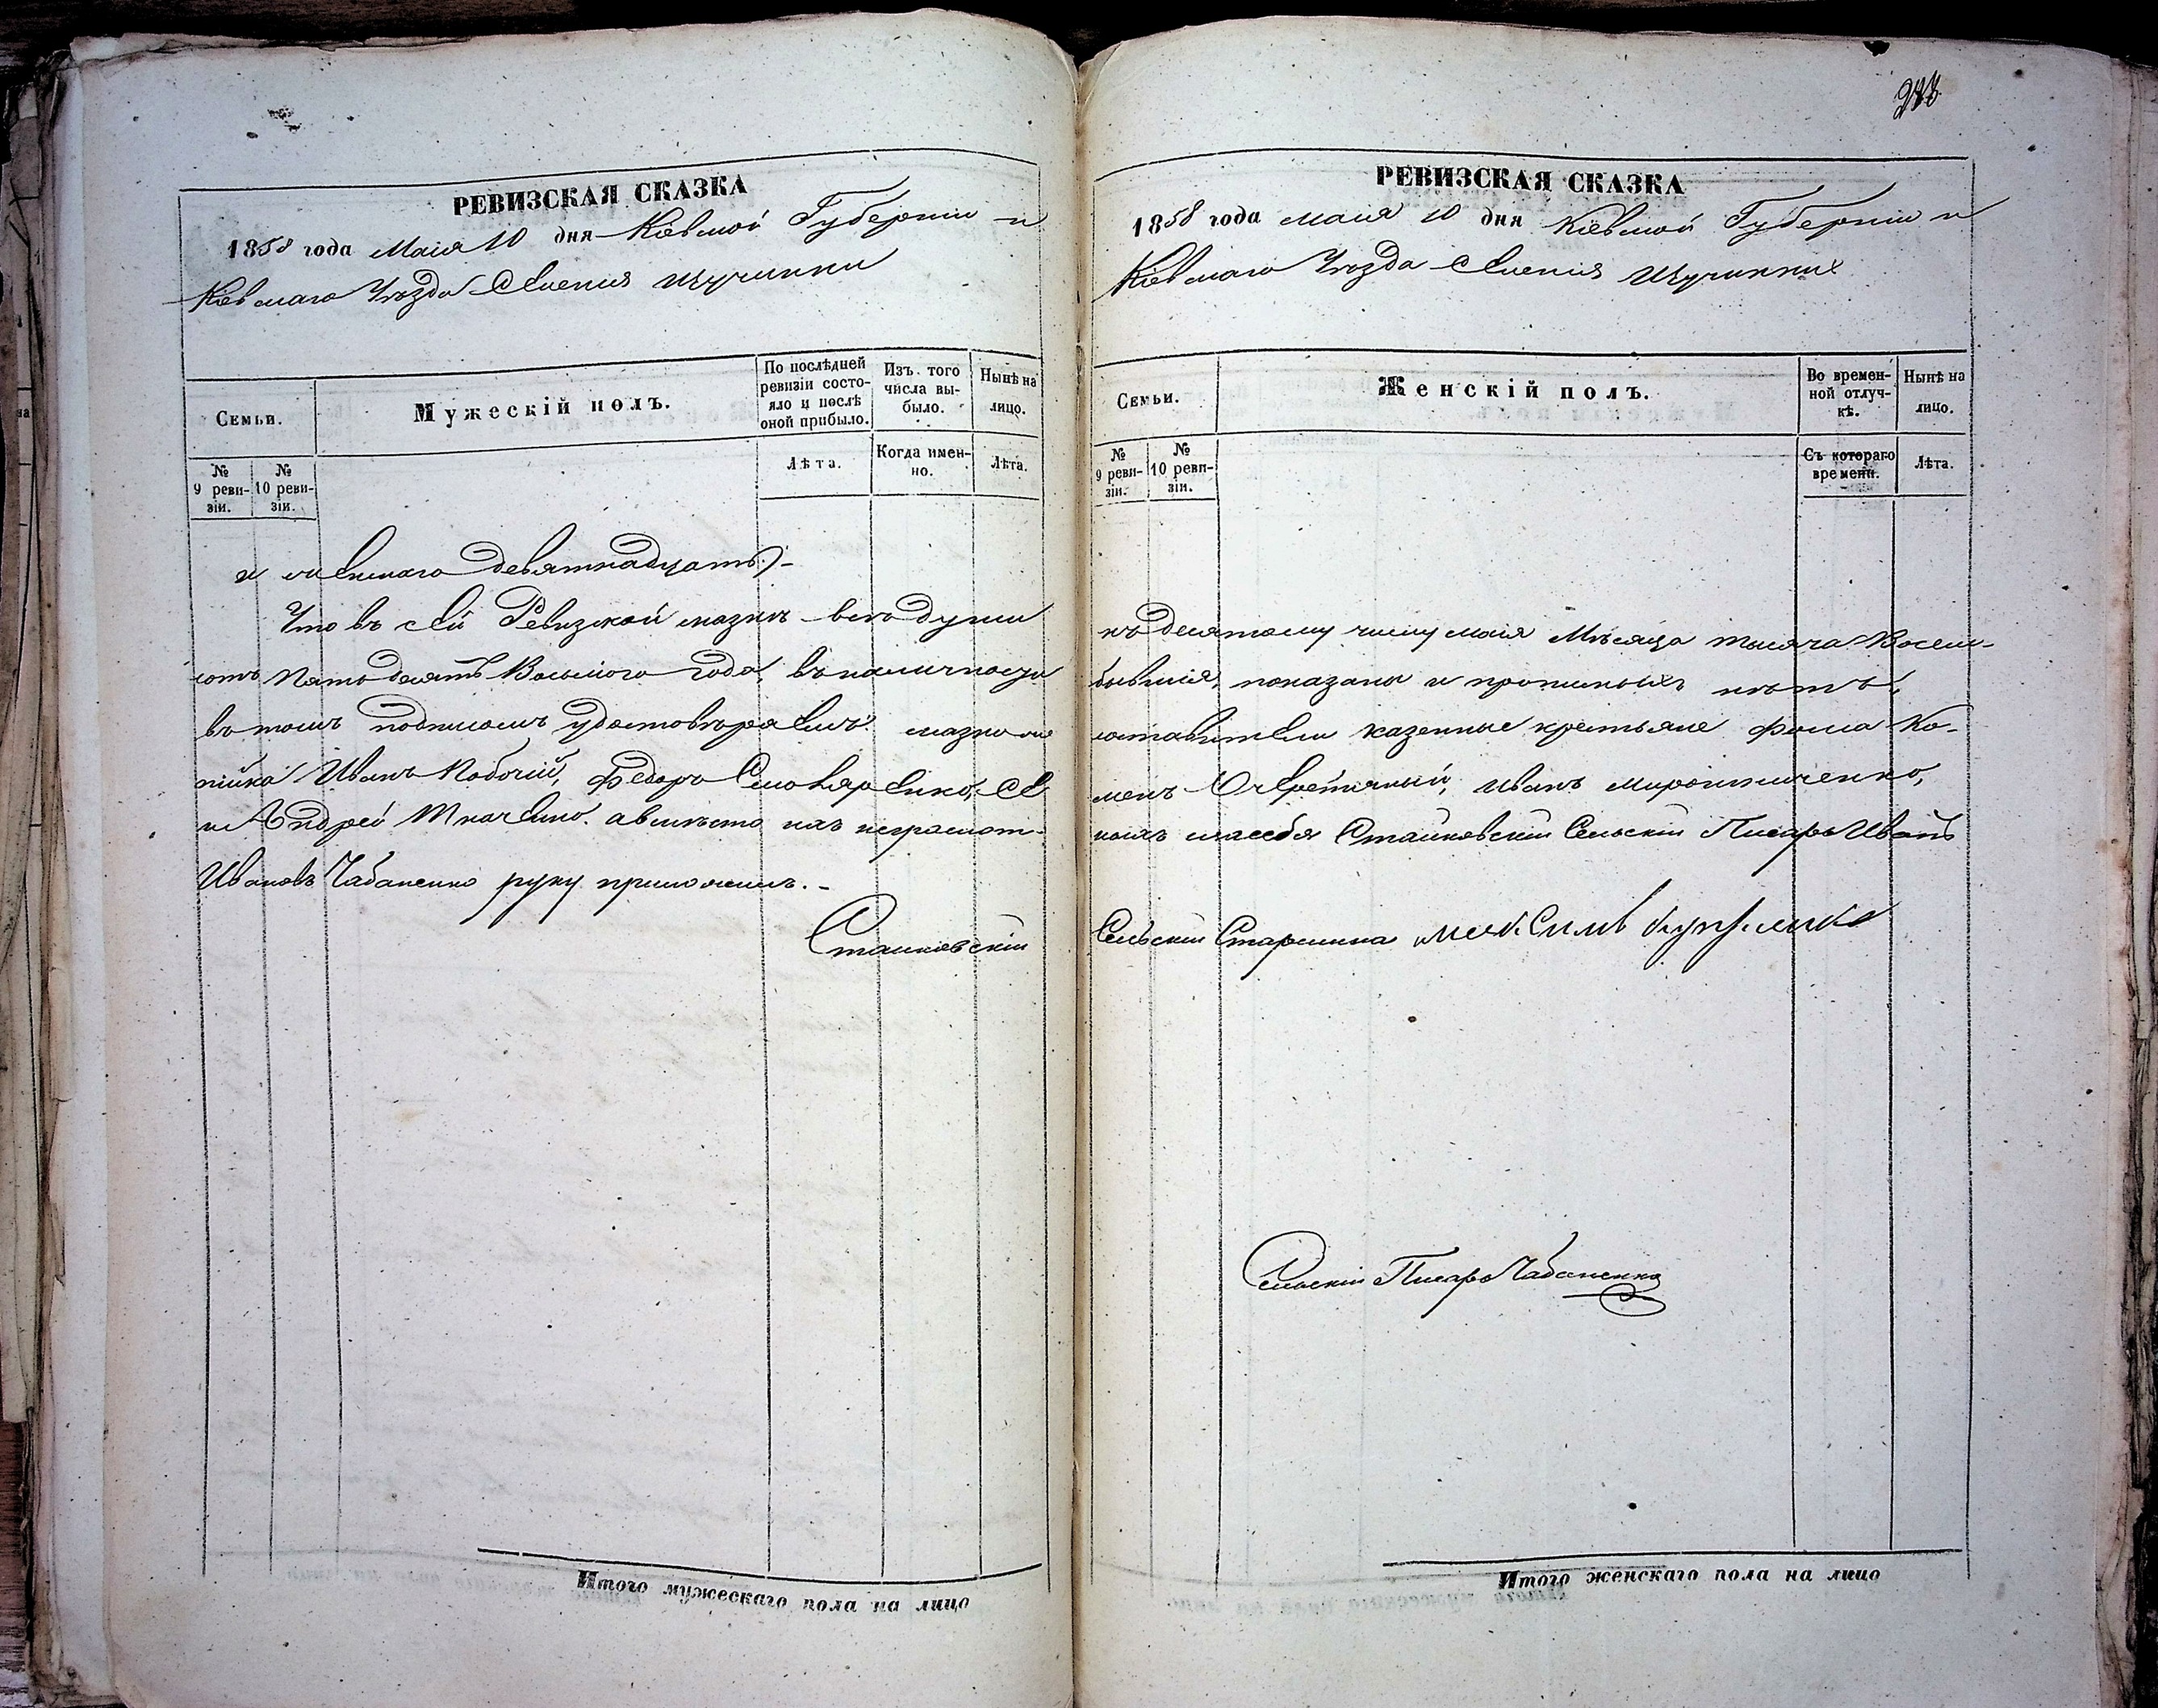 РЕВИЗСКАЯ СКАЗКА
1858 года Маія 10 дня Кіевской Губерніи и
Кіевскаго Уѣзда Селенія Щучинки
Семьи.
Мужескій полъ.
По послѣдней ревизіи состояло и послѣ оной прибыло.
Изъ того числа выбыло.
Нынѣ на лицо.
№ 9 ревизіи.
№ 10 ревизіи.
Лѣта.
Когда именно.
Лѣта.
и женскаго девятнадцать)-
Что въ сей Ревизской сказкѣ всѣ души
сотъ пятьдесятъ Восьмого года, въ наличности
въ томъ подписомъ удостовѣряемъ. сказко со
пійка Иванъ Кобочій, Федоръ Смоляренко, Се
и Андрей Ткаченко. авмѣсто ихъ неграмот-
Ивановъ Чабаненко руку приложилъ.-
Стайковскій
Итого мужескаго пола на лицо
РЕВИЗСКАЯ СКАЗКА
1858 года маія 10 дня Кіевской Губерніи и
Кіевскаго Уѣзда Селенія Щучинки
Семьи.
Женскій полъ.
Во временной отлучкѣ.
Нынѣ на лицо.
№ 9 ревизіи.
№ 10 ревизіи.
Съ котораго времени.
Лѣта.
къ десятому числу маія Мѣсяца тысяча Восем-
бывшія, показаны и прописныхъ нѣтъ,
ставители казенные крестьяне Фома Ко-
менъ Очеретяный, Иванъ Мирошниченко,
ныхъ и засебя Стайковскій Сельскій Писарь Иванъ
Сельскій Старшина Максимъ
Сельскій Писарь Чабаненко
Итого женскаго пола на лицо